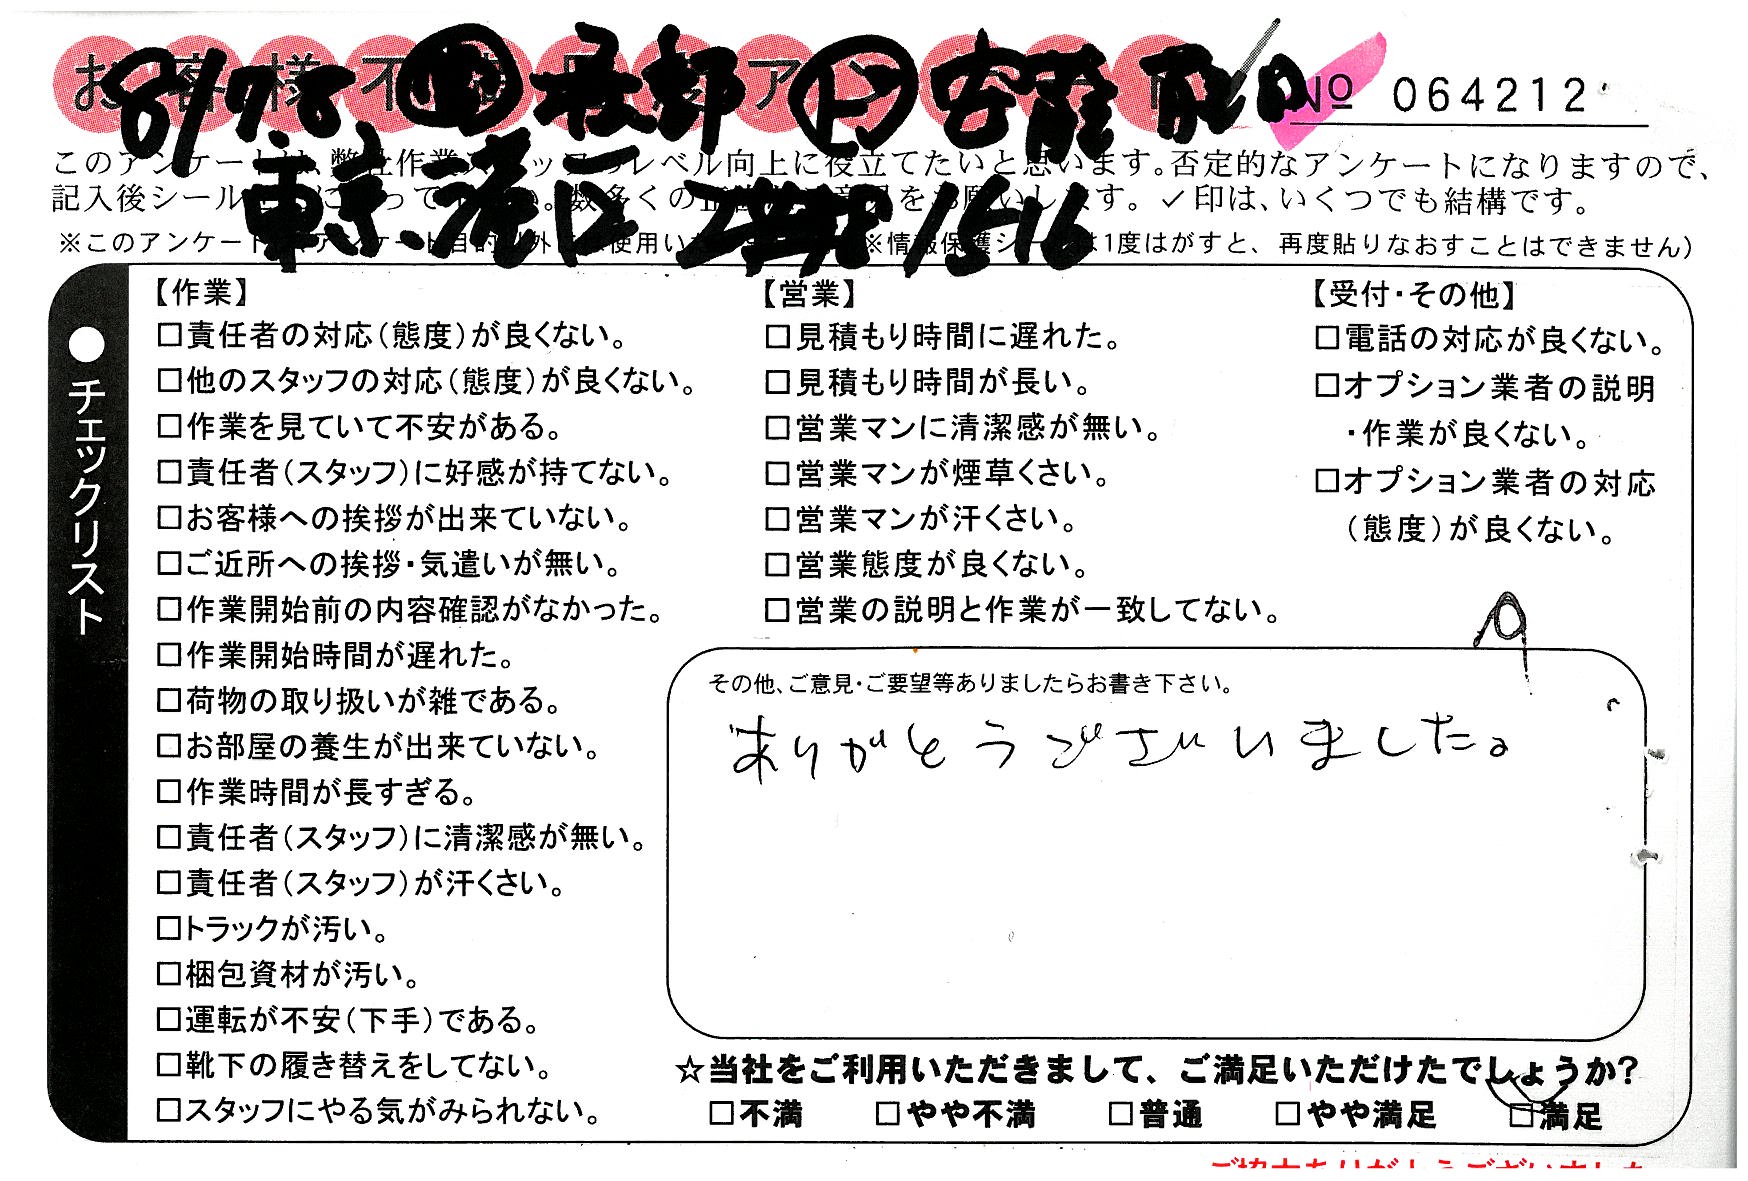 № 064212
このアンケートは、弊社作業スタッフのレベル向上に役立てたいと思います。否定的なアンケートになりますので、
記入後シール をお願いします。✓印は、いくつでも結構です。
※このアンケート は使用い ※情報保護シールは1度はがすと、再度貼りなおすことはできません)
東京 港区
●チェックリスト
【作業】
□責任者の対応(態度)が良くない。
□他のスタッフの対応(態度)が良くない。
□作業を見ていて不安がある。
□責任者(スタッフ)に好感が持てない。
□お客様への挨拶が出来ていない。
□ご近所への挨拶・気遣いが無い。
□作業開始前の内容確認がなかった。
□作業開始時間が遅れた。
□荷物の取り扱いが雑である。
□お部屋の養生が出来ていない。
□作業時間が長すぎる。
□責任者(スタッフ)に清潔感が無い。
□責任者(スタッフ)が汗くさい。
□トラックが汚い。
□梱包資材が汚い。
□運転が不安(下手)である。
□靴下の履き替えをしてない。
□スタッフにやる気がみられない。
【営業】
□見積もり時間に遅れた。
□見積もり時間が長い。
□営業マンに清潔感が無い。
□営業マンが煙草くさい。
□営業マンが汗くさい。
□営業態度が良くない。
□営業の説明と作業が一致してない。
【受付・その他】
□電話の対応が良くない。
□オプション業者の説明
・作業が良くない。
□オプション業者の対応
(態度)が良くない。
その他、ご意見・ご要望等ありましたらお書き下さい。
ありがとうございました。
☆当社をご利用いただきまして、ご満足いただけたでしょうか?
□不満 □やや不満 □普通 □やや満足 □満足
ご協力ありがとうございました